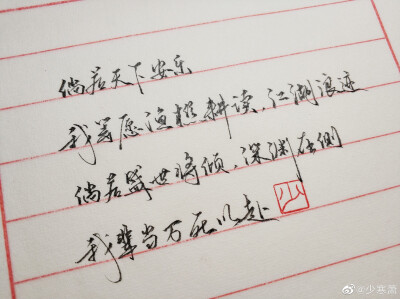 倘若天下安乐
我等愿渔樵耕读，江湖浪迹
倘若盛世将倾，深渊在侧
我辈当万死以赴
少
@少寒萧